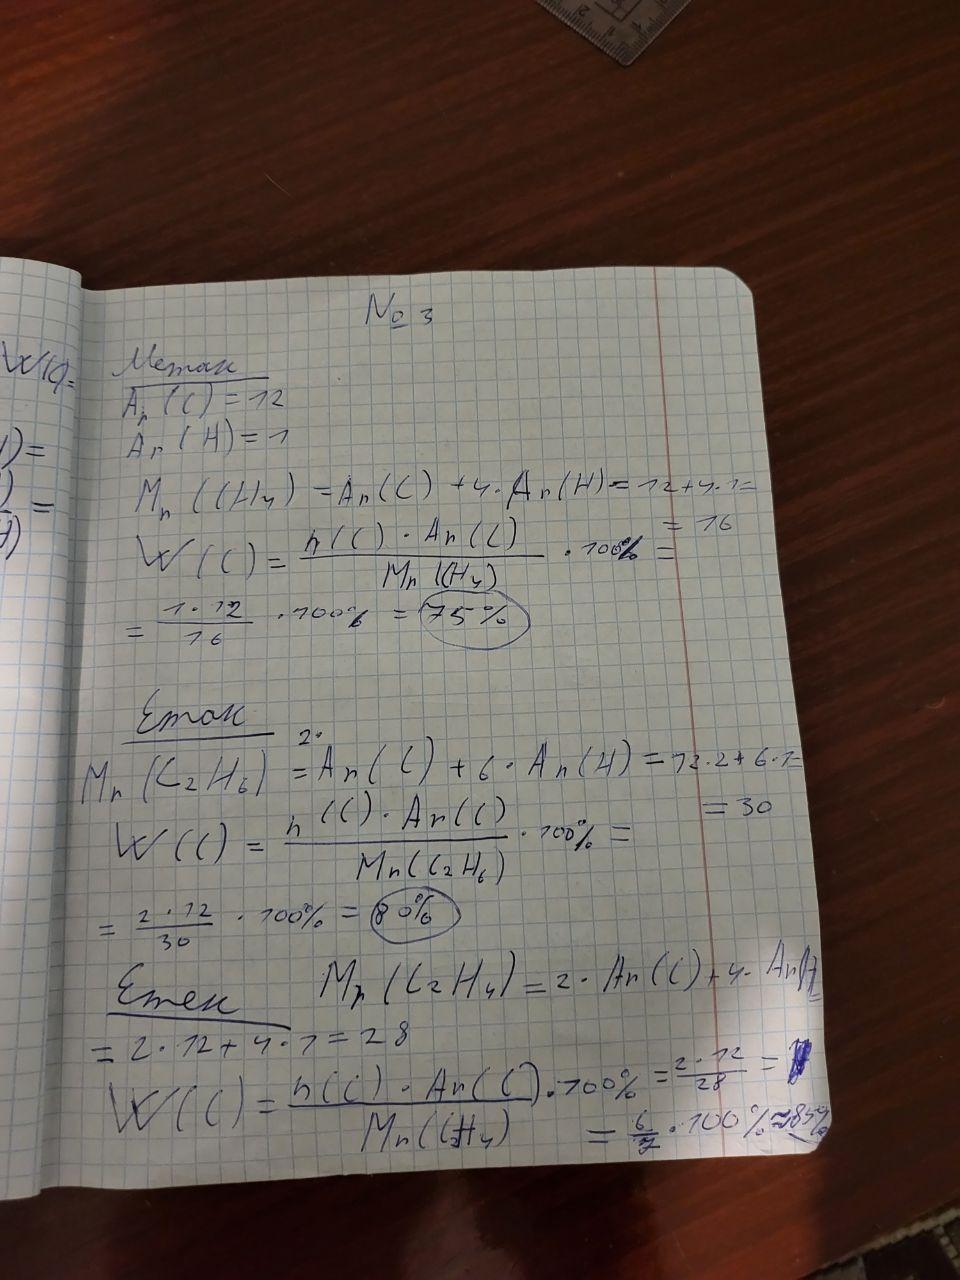 № 3
W(C)=
Метан
Ar(C)=12
Ar(H)=1
Mr(CH4) = Ar(C) + 4·Ar(H) = 12+4·1=
= 16
W(C) = n(C)·Ar(C) / Mr(CH4) · 100% =
= 1·12 / 16 · 100% = 75%
Етан
Mr(C2H6) = 2·Ar(C) + 6·Ar(H) = 12·2+6·1=
= 30
W(C) = n(C)·Ar(C) / Mr(C2H6) · 100% =
= 2·12 / 30 · 100% = 80%
Етен Mr(C2H4) = 2·Ar(C)+4·Ar(H)=
= 2·12+4·1=28
W(C) = n(C)·Ar(C) / Mr(C2H4) · 100% = 2·12 / 28 =
= 6/7 · 100% ≈ 85%